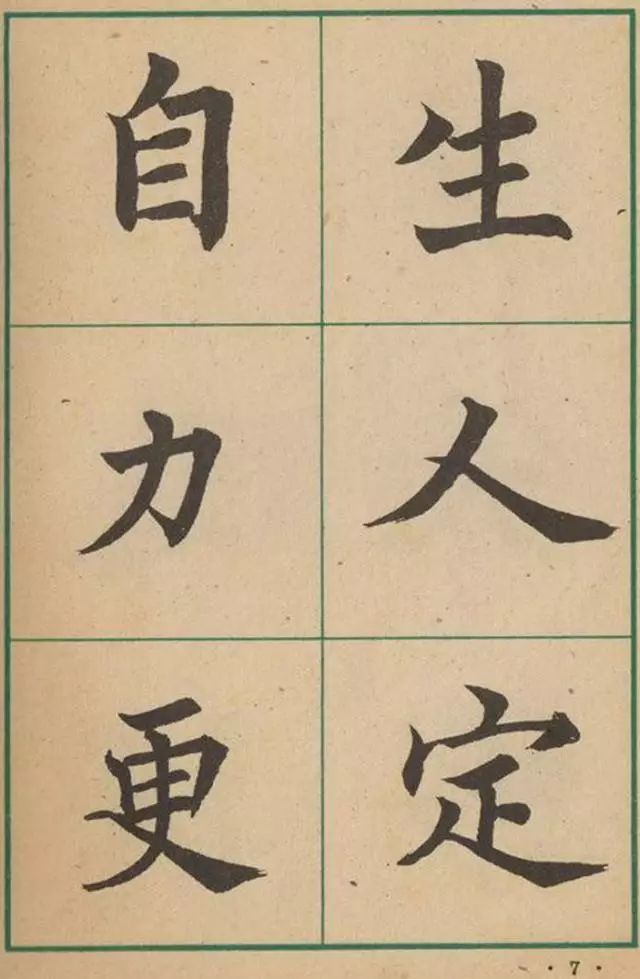 生人定
自力更
· 7 ·